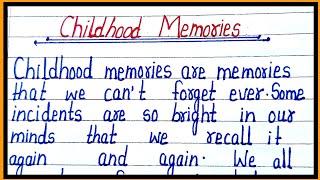 Childhood Memories
Childhood memories are memories
that we can't forget ever. Some
incidents are so bright in our
minds that we recall it
again and again. We all